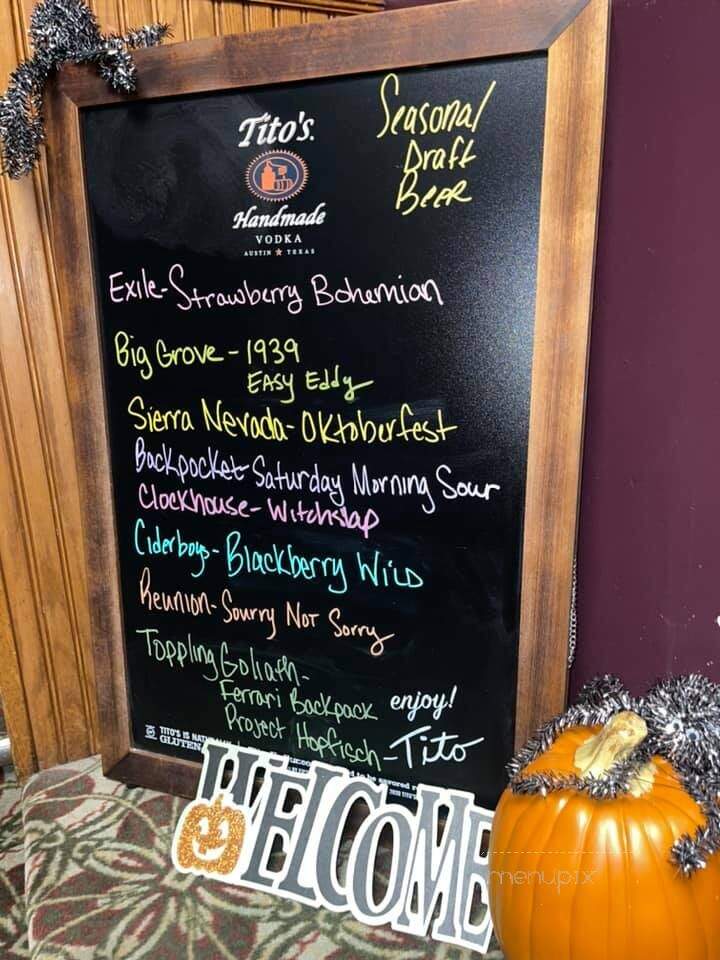 Tito's.
Handmade
VODKA
AUSTIN ★ TEXAS
Seasonal
Draft
Beer
Exile-Strawberry Bohemian
Big Grove - 1939
Easy Eddy
Sierra Nevada-Oktoberfest
Backpocket-Saturday Morning Sour
Clockhouse-Witchslap
Ciderboys-Blackberry Wild
Reunion-Sourry Not Sorry
Toppling Goliath-
Ferrari Backpack
Project Hopfisch
enjoy!
-Tito
TITO'S IS
GLUTEN
to be savored
WELCOME
menupix